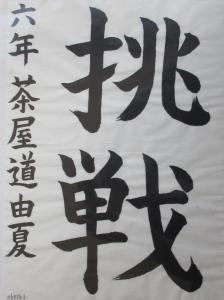 挑戦
六年 茶屋道由夏